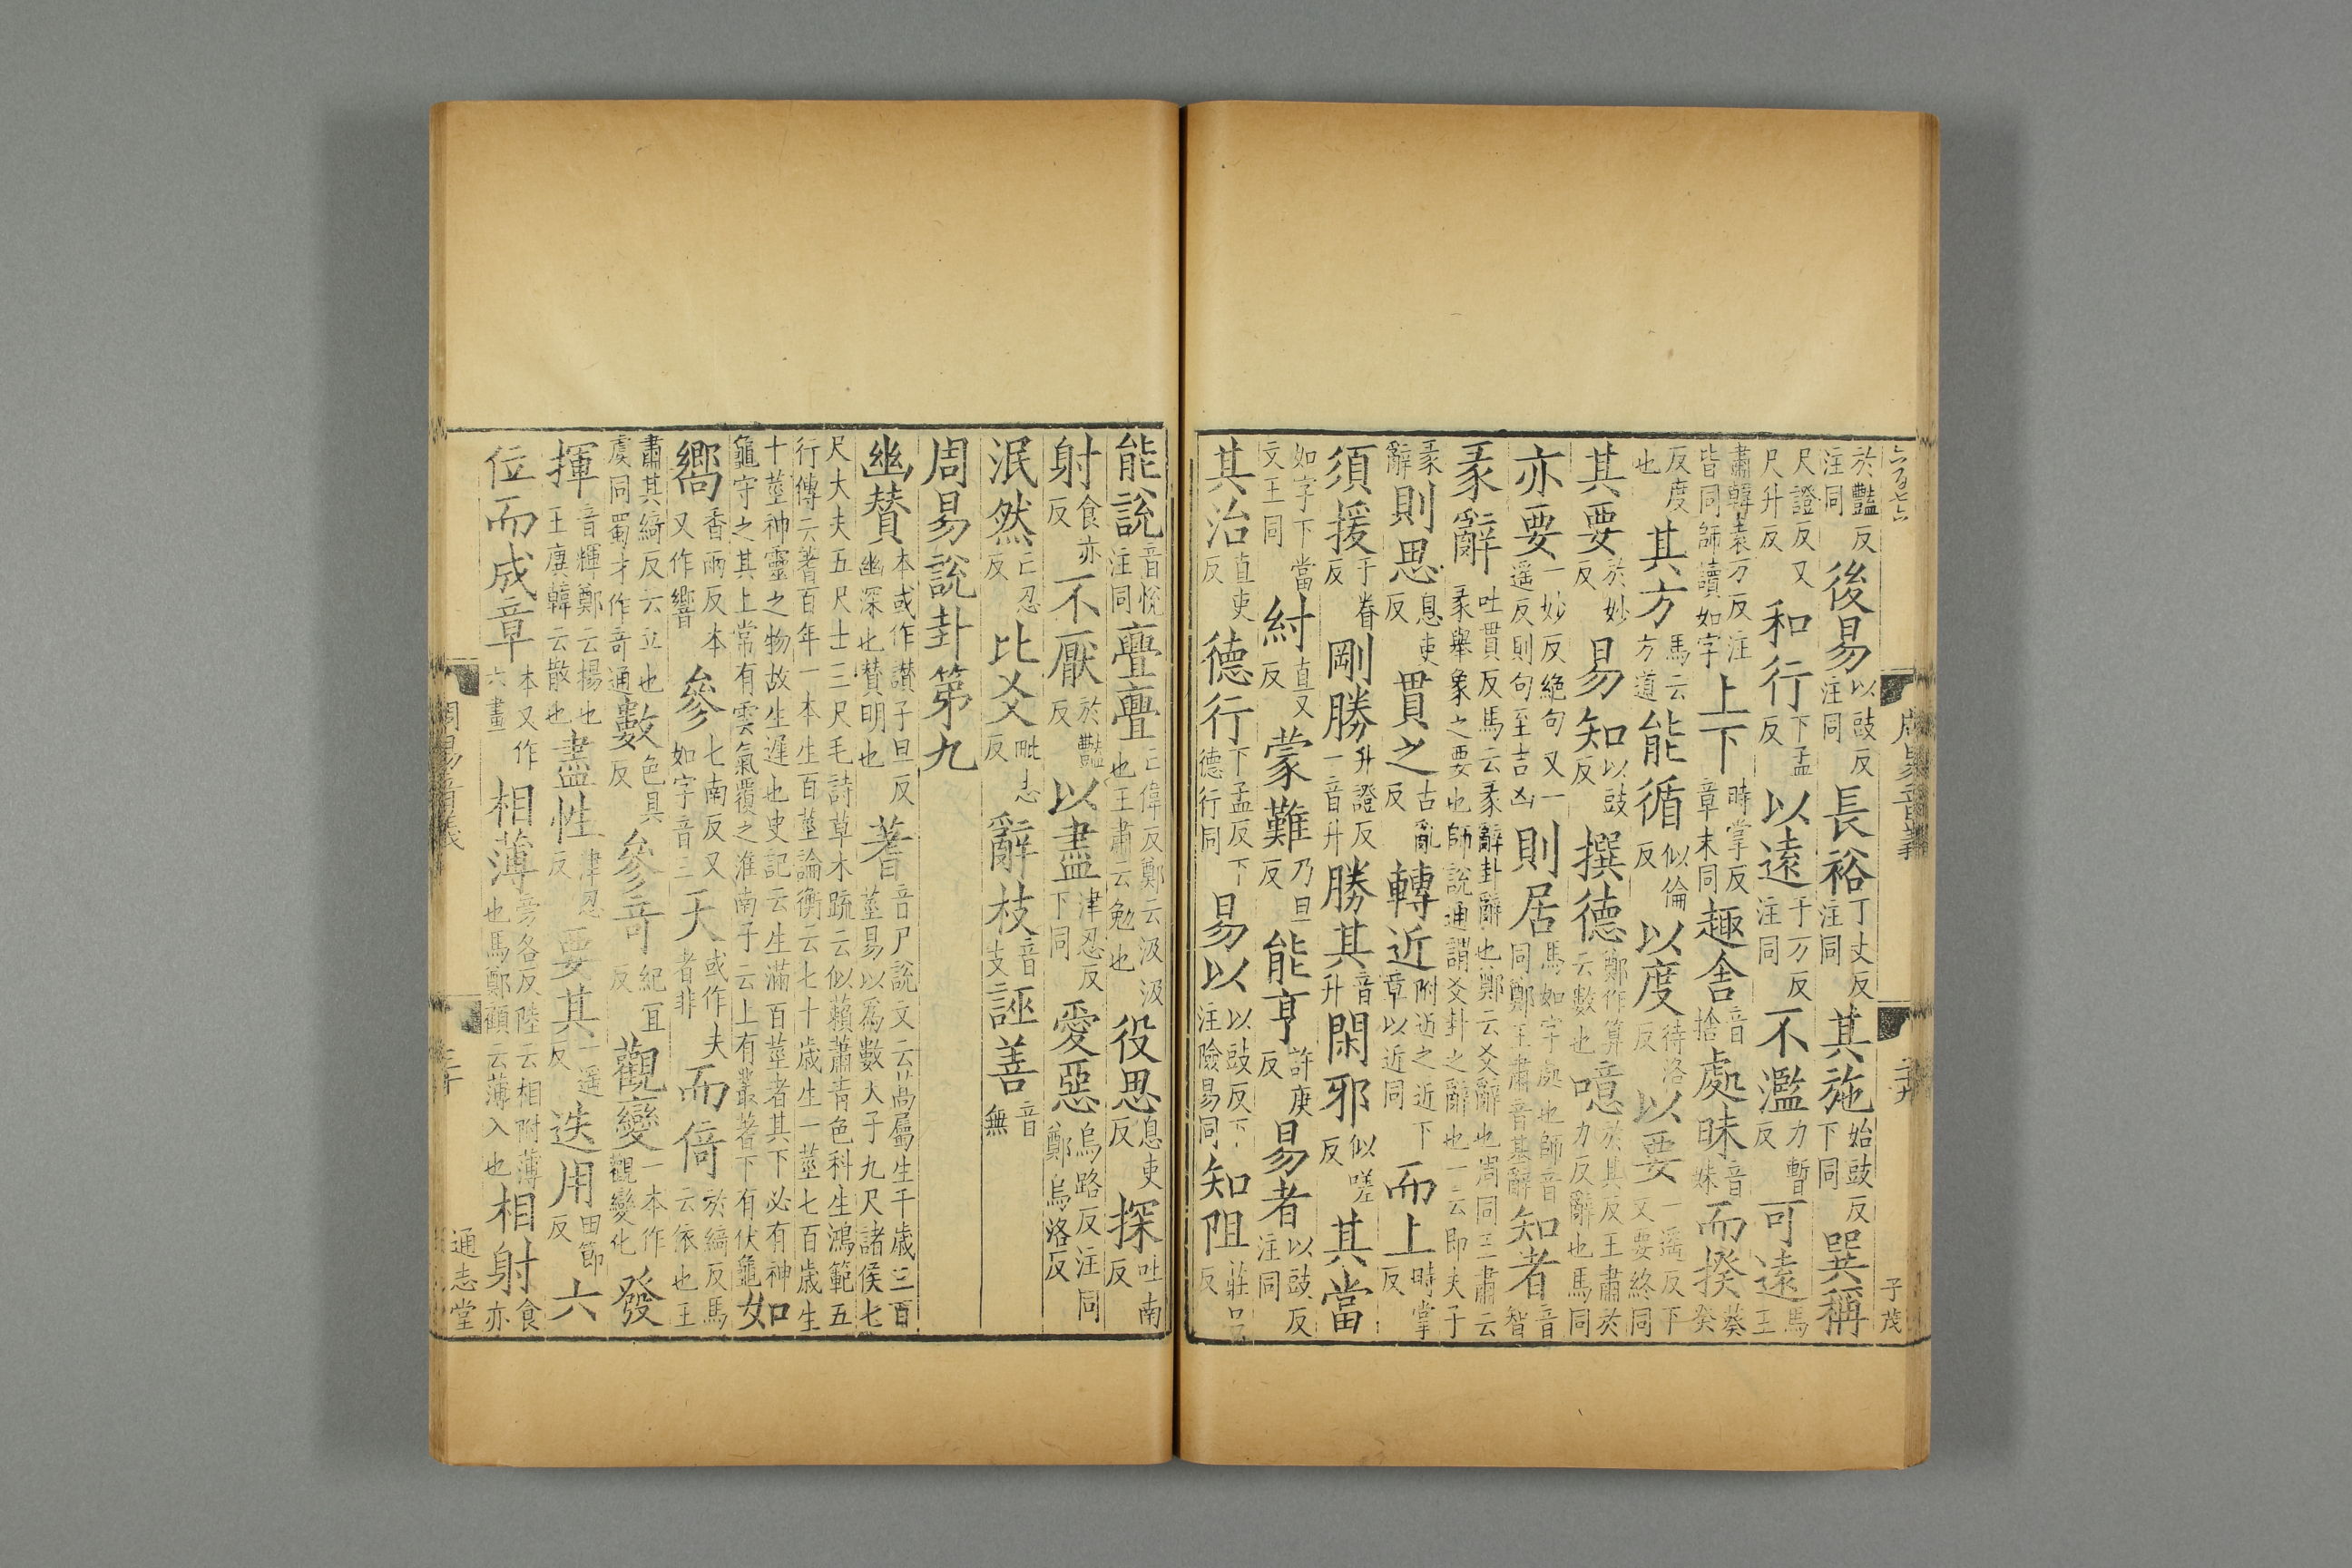 周易音義 二九 子茂
於豔反注同後易以豉反注同長裕丁丈反注同其施始豉反下同巽稱
尺證反又尺升反和行下孟反以遠于万反注同不濫力暫反可遠馬王
肅韓袁万反注皆同師讀如字上下時掌反章末同趣舍音捨處昧音妹而揆葵癸
反度也其方馬云方道能循似倫反以度待洛反以要一遥反下又要終同
其要於妙反易知以豉反撰德鄭作算云數也噫於其反王肅於力反辭也馬同
亦要一妙反絶句又一遥反則句至吉凶則居馬如字處也師音同鄭王肅音基辭知者音智
彖辭吐貫反馬云彖辭卦辭也鄭云爻辭也周同王肅云彖舉象之要也師說通謂爻卦之辭也一云即夫子
彖辭則思息吏反貫之古亂反轉近附近之近下章以近同而上時掌反
須援于眷反剛勝升證反一音升勝其音升閑邪似嗟反其當
如字下當文王同紂直又反蒙難乃旦反能亨許庚反易者以豉反注同
其治直吏反德行下孟反下德行同易以以豉反下注險易同知阻莊呂反
能說音悅注同亹亹亡偉反鄭云汲汲也王肅云勉也役思息吏反探吐南反
射食亦反不厭於豔反以盡津忍反下同愛惡烏路反注同鄭烏洛反
泯然亡忍反比爻毗志反辭枝音支誣善音無
周易說卦第九
幽贊本或作讚子旦反幽深也贊明也蓍音尸說文云蒿屬生千歲三百莖易以爲數天子九尺諸侯七
尺大夫五尺士三尺毛詩草木疏云似藾蕭青色科生鴻範五行傳云蓍百年一本生百莖論衡云七十歲生一莖七百歲生
十莖神靈之物故生遲也史記云生滿百莖者其下必有神龜守之其上常有雲氣覆之淮南子云上有叢蓍下有伏龜如
嚮香兩反本又作響參七南反又如字音三天或作夫者非而倚於綺反馬云依也王
肅其綺反云立也虞同蜀才作奇通數色具反參奇紀宜反觀變一本作觀變化發
揮音輝鄭云揚也王廙韓云散也盡性津忍反要其一遥反迭用田節反六
位而成章本又作六畫相薄旁各反陸云相附薄也馬鄭顧云薄入也相射食亦
周易音義 三十 通志堂